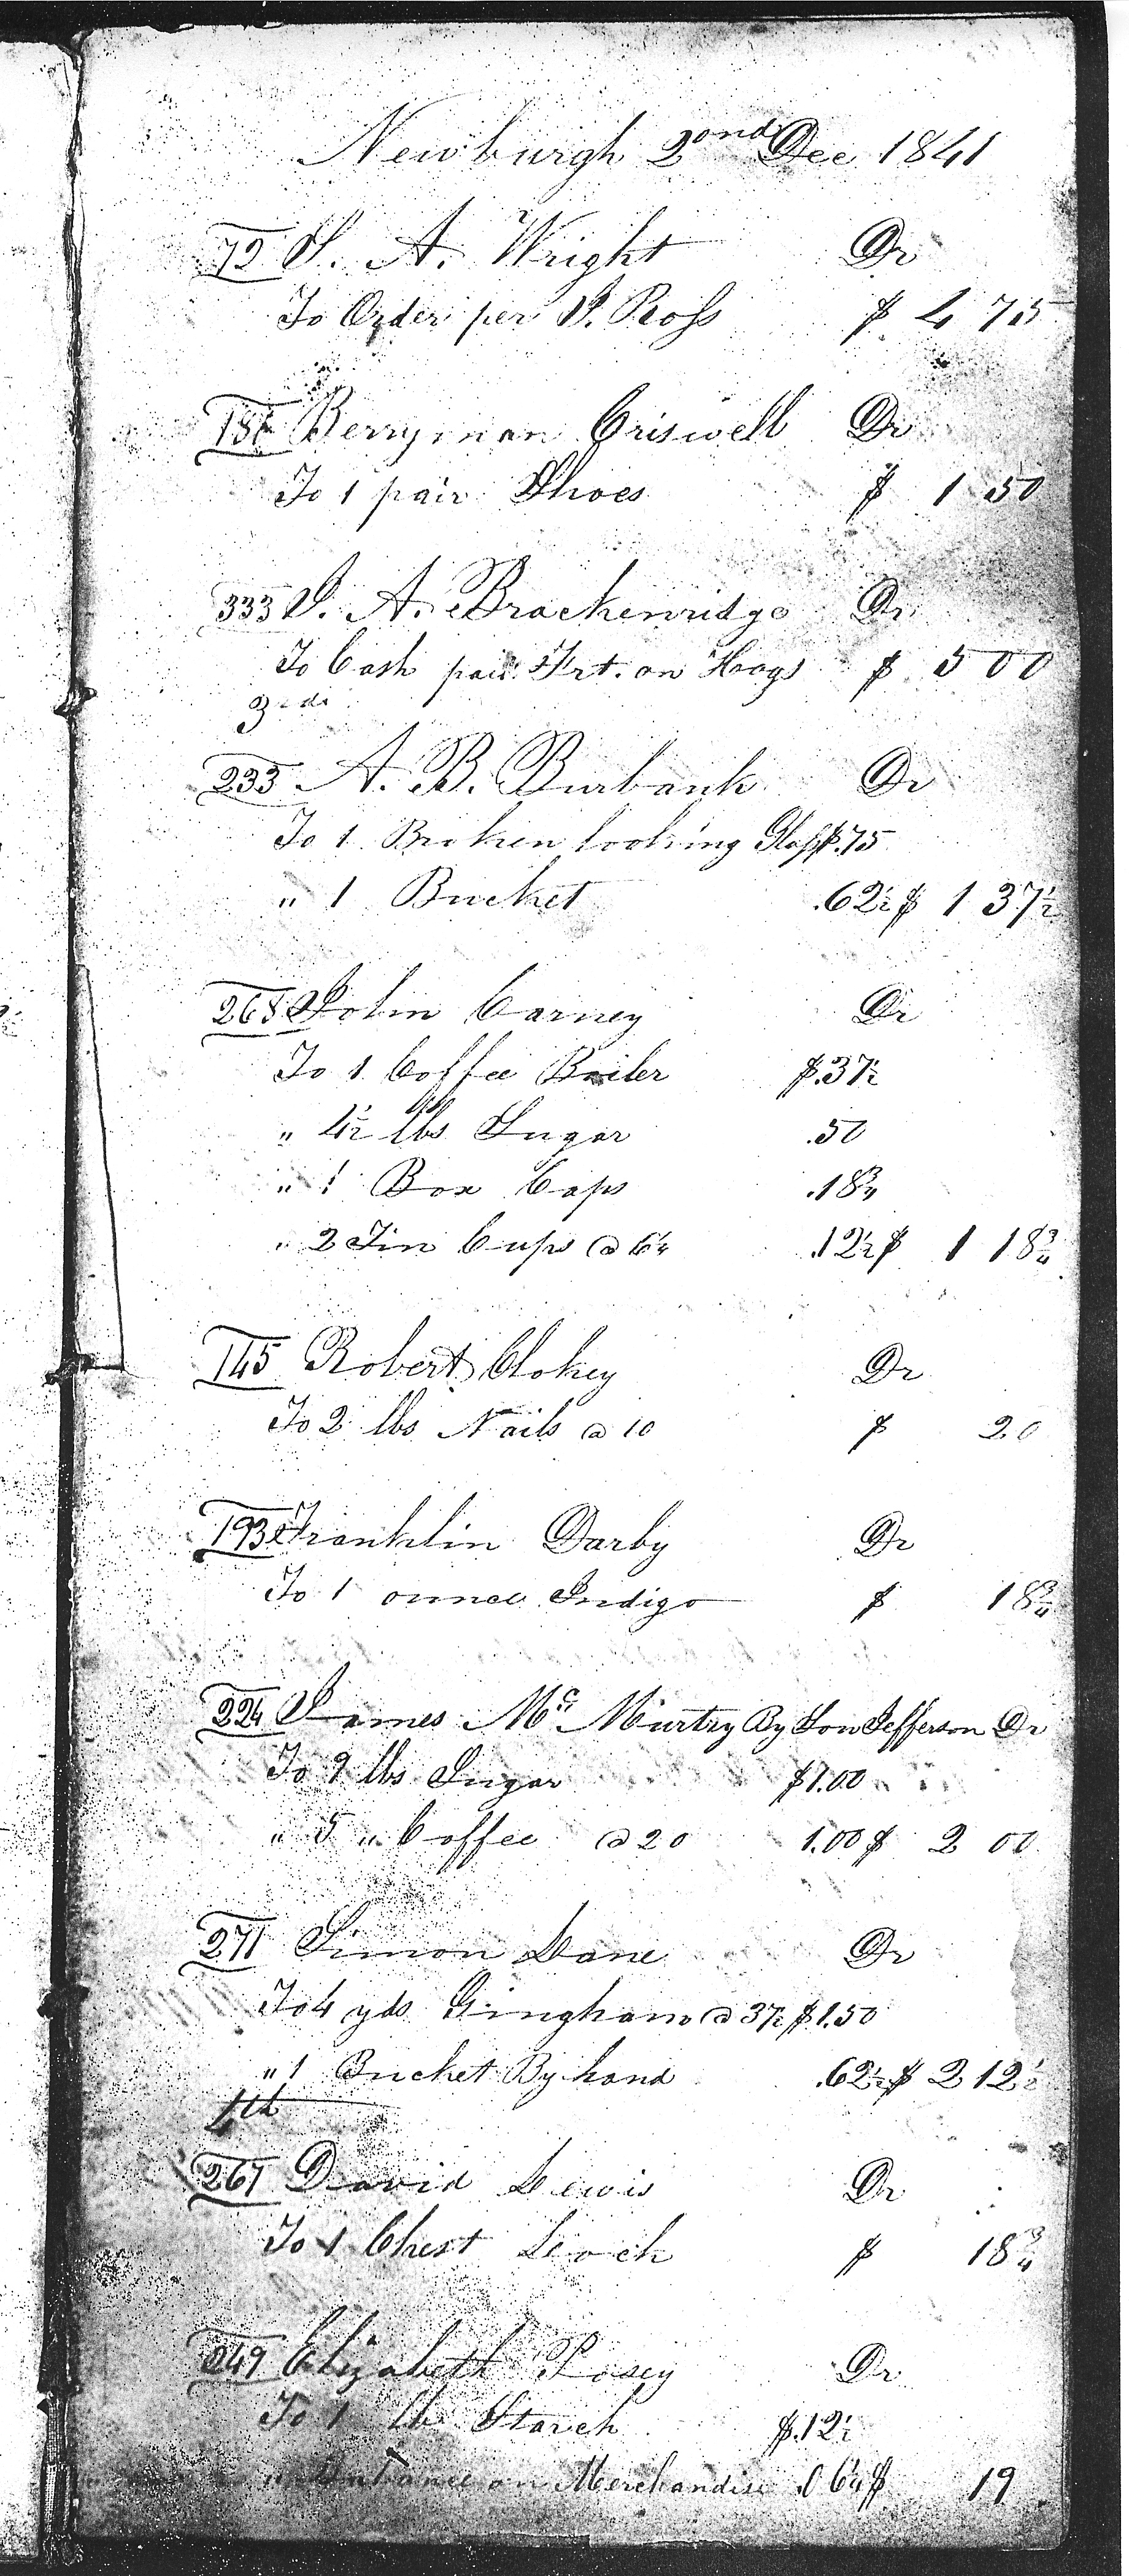 Newburgh 2ond Dec 1841
72 S. A. Wright Dr
To Order per S. Ross $ 4 75
Berryman Criswell Dr
To 1 pair Shoes $ 1 50
333 J. A. Brackenridge Dr
To Cash paid Frt. on Hogs $ 5 00
3rd
233 A. B. Burbank Dr
To 1 Broken looking Glass $.75
" 1 Bucket .62½ $ 1 37½
268 John Carney Dr
To 1 Coffee Boiler $.37½
" 4½ lbs Sugar .50
" 1 Box Caps .18¾
" 2 Tin Cups @ 6¼ .12½ $ 1 18¾
145 Robert Clokey Dr
To 2 lbs Nails @ 10 $ 20
193 Franklin Darby Dr
To 1 ounce Indigo $ 18¾
224 James Mc Murtry By Son Jefferson Dr
To 9 lbs Sugar $1.00
" 5 " Coffee @ 20 1.00 $ 2 00
271 Simon Lane Dr
To 4 yds Gingham @ 37½ $1.50
" 1 Bucket By hand .62½ $ 2 12½
4th
267 David Lewis Dr
To 1 Chest Lock $ 18¾
249 Elizabeth Posey Dr
To 1 lb Starch $.12½
on Merchandise .06¼ $ 19